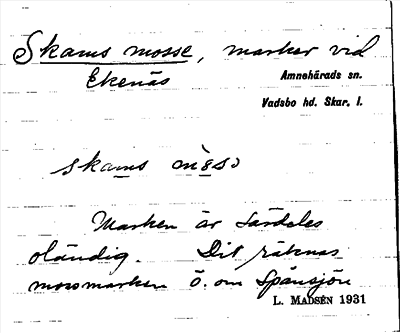 Skams mosse, marker vid
Ekenäs
Amnehärads sn.
Vadsbo hd. Skar. l.
skams
Marken är särdeles
oländig. Dit räknas
mossmarken ö. om Spånsjön
L. MADSÉN 1931